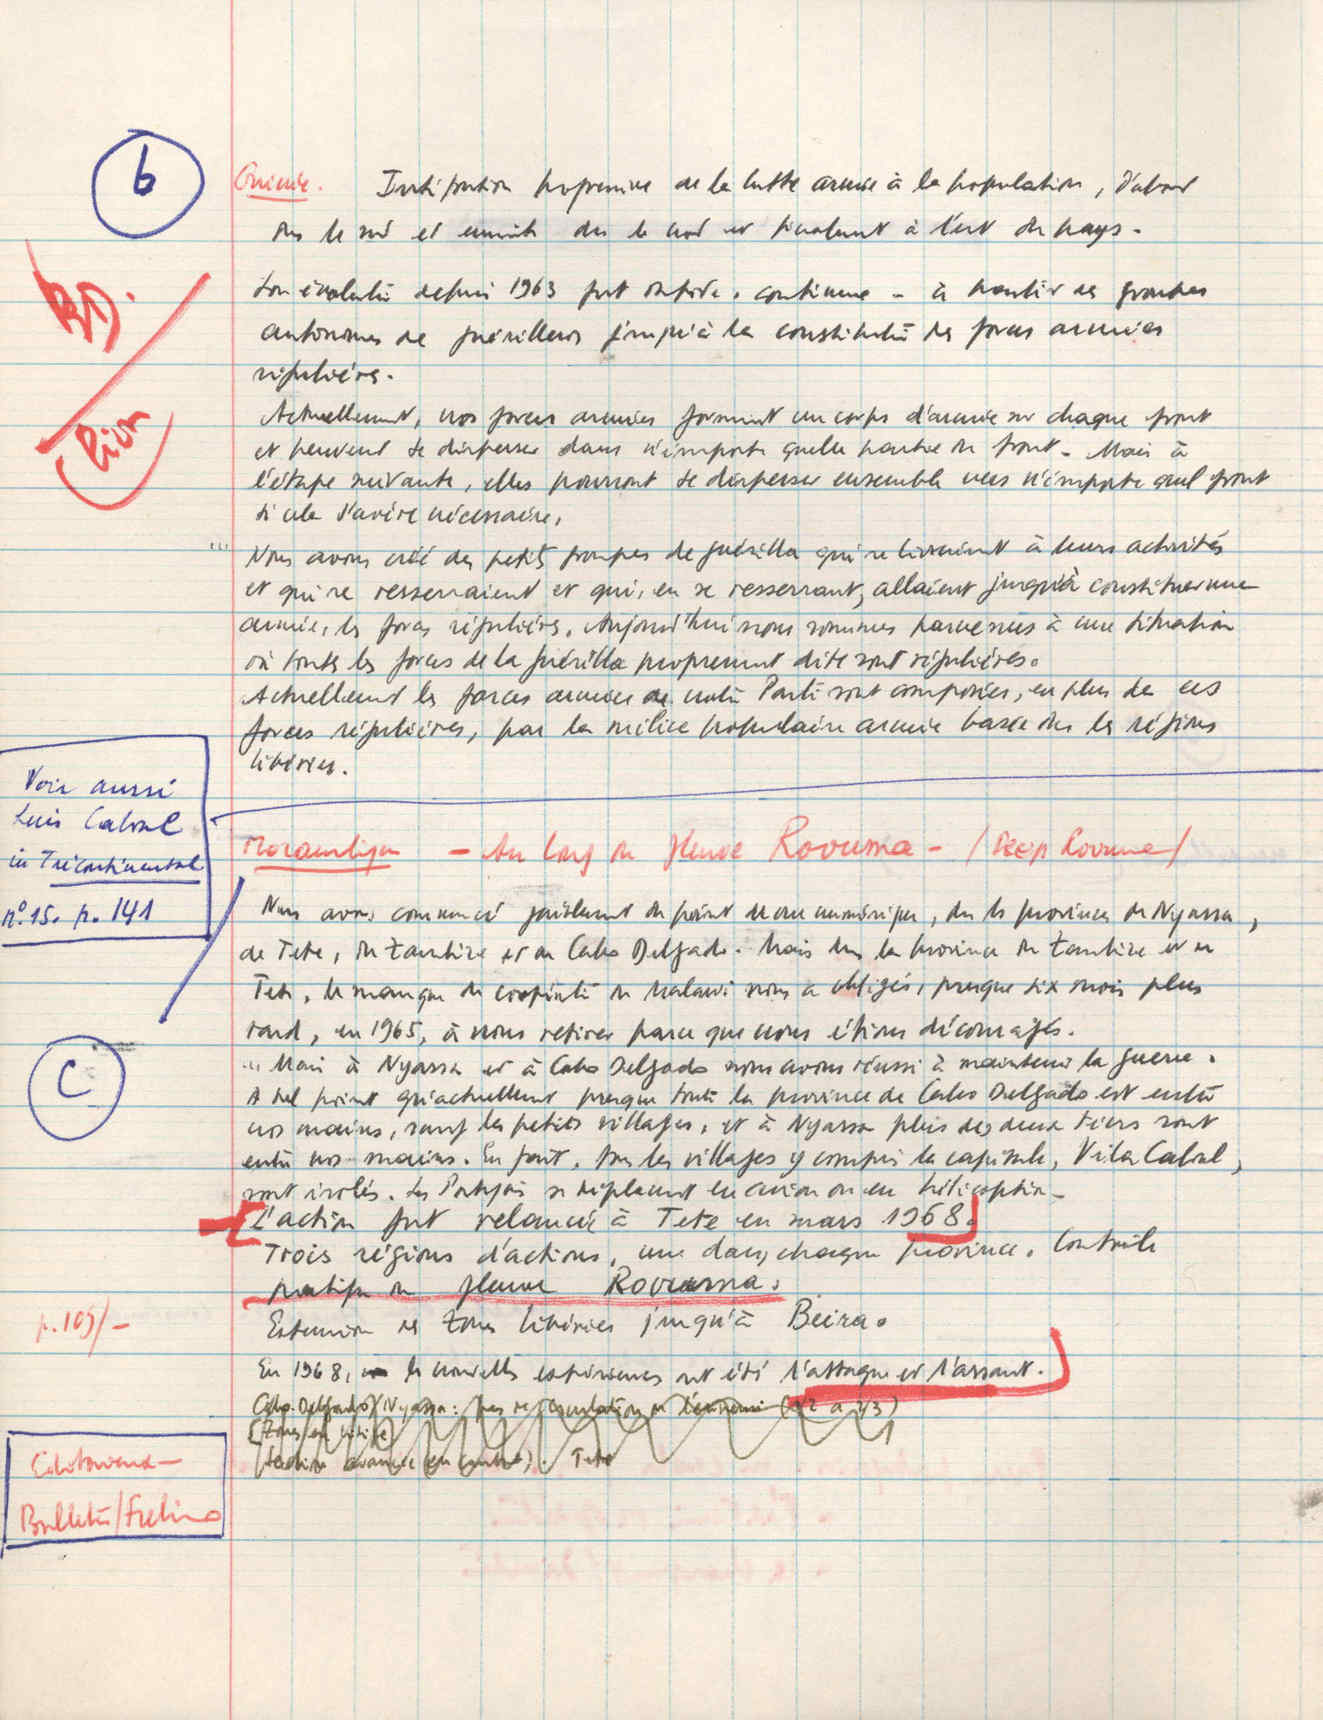 b
Guinée. Intégration progressive de la lutte armée à la population, d'abord
dans le sud et ensuite dans le nord et finalement à l'est du pays.
BD.
Son évolution depuis 1963 fut rapide, continue - à partir des groupes
autonomes de guérilleros jusqu'à la constitution des forces armées
régulières.
Actuellement, nos forces armées forment un corps d'armée sur chaque front
et peuvent se disperser dans n'importe quelle partie du front. Mais à
l'étape suivante, elles pourront se disperser ensemble vers n'importe quel front
si cela s'avère nécessaire.
... Nous avons créé des petits groupes de guérilla qui se livraient à leurs activités
et qui se resserraient et qui, en se resserrant, allaient jusqu'à constituer une
armée, les forces régulières. Aujourd'hui nous sommes parvenus à une situation
où toutes les forces de la guérilla proprement dite sont régulières.
Actuellement les forces armées de notre Parti sont composées, en plus de ces
forces régulières, par la milice populaire armée basée dans les régions
libérées.
Voir aussi
Luis Cabral
in Tricontinental
nº 15. p. 141
Mozambique - Au long du fleuve Rovuma - (
Nous avons commencé faiblement du point de vue numérique, dans les provinces de Nyassa,
de Tete, du Zambèze et de Cabo Delgado. Mais dans la province du Zambèze et de
Tete, le manque de coopération du Malawi nous a obligés, presque six mois plus
tard, en 1965, à nous retirer parce que nous étions découragés.
C
... Mais à Nyassa et à Cabo Delgado nous avons réussi à maintenir la guerre.
A tel point qu'actuellement presque toute la province de Cabo Delgado est entre
nos mains, sauf les petits villages, et à Nyassa plus des deux tiers sont
entre nos mains. En fait, tous les villages y compris la capitale, Vila Cabral,
sont isolés. Les Portugais se déplacent en avion ou en hélicoptère.
L'action fut relancée à Tete en mars 1968.
Trois régions d'actions, une dans chaque province. Contrôle
pratique du fleuve Rovuma.
p. 109/-
Extension des zones libérées jusqu'à Beira.
En 1968, les nouvelles expériences ont été l'attaque et l'assaut.
Cabo Delgado/Nyassa: (1/2 a 2/3)
Tete
Bulletin/Frelimo